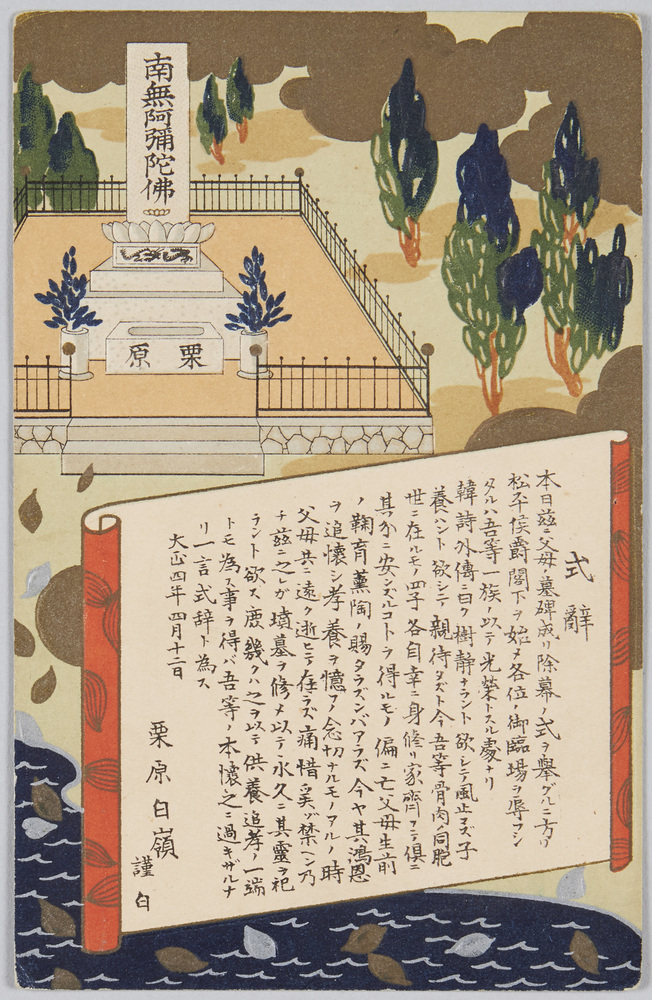 南無阿彌陀佛
栗原
式辭
本日茲ニ父母ノ墓碑成リ除幕ノ式ヲ擧グルニ方リ
松平侯爵閣下ヲ始メ各位ノ御臨場ヲ辱フシ
タルハ吾等一族ノ以テ光榮トスル處ナリ
韓詩外傳ニ曰ク樹静ナラント欲シテ風止マズ子
養ハント欲シテ親待タズト今吾等骨肉ノ同胞
世ニ在ルモノ四子各自幸ニ身修リ家齊フテ俱ニ
其分ニ安ンズルコトヲ得ルモノ偏ニ亡父母生前
ノ鞠育薫陶ノ賜タラズンバアラズ今ヤ其鴻恩
ヲ追懷シ孝養ヲ憶フノ念切ナルモノアルノ時
父母共ニ遠ク逝ヒテ在ラズ痛惜奚ゾ禁ヘン乃
チ茲ニ之レガ墳墓ヲ修メ以テ永久ニ其靈ヲ祀
ラント欲ス庶幾クハ之ヲ以テ供養追孝ノ一端
トモ為ス事ヲ得バ吾等ノ本懷之ニ過キザルナ
リ一言式辞ト為ス
大正四年四月十二日
栗原白嶺
謹白